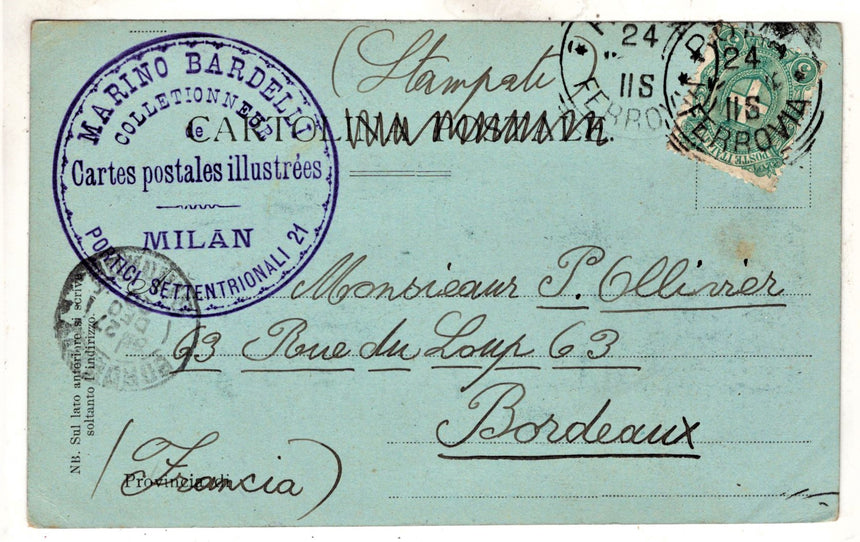 MARINO BARDELLI
COLLETIONNEUR
de
Cartes postales illustrées
MILAN
PORTICI SETTENTRIONALI 21
(Stampati)
CARTOLINA POSTALE.
24
11S
FERROVIA
24
11S
FERROVIA
POSTE
Monsieaur P. Ollivier
63 Rue du Loup 63
Bordeaux
(Francia)
Provincia di
NB. Sul lato anteriore si scriva
soltanto l'indirizzo.